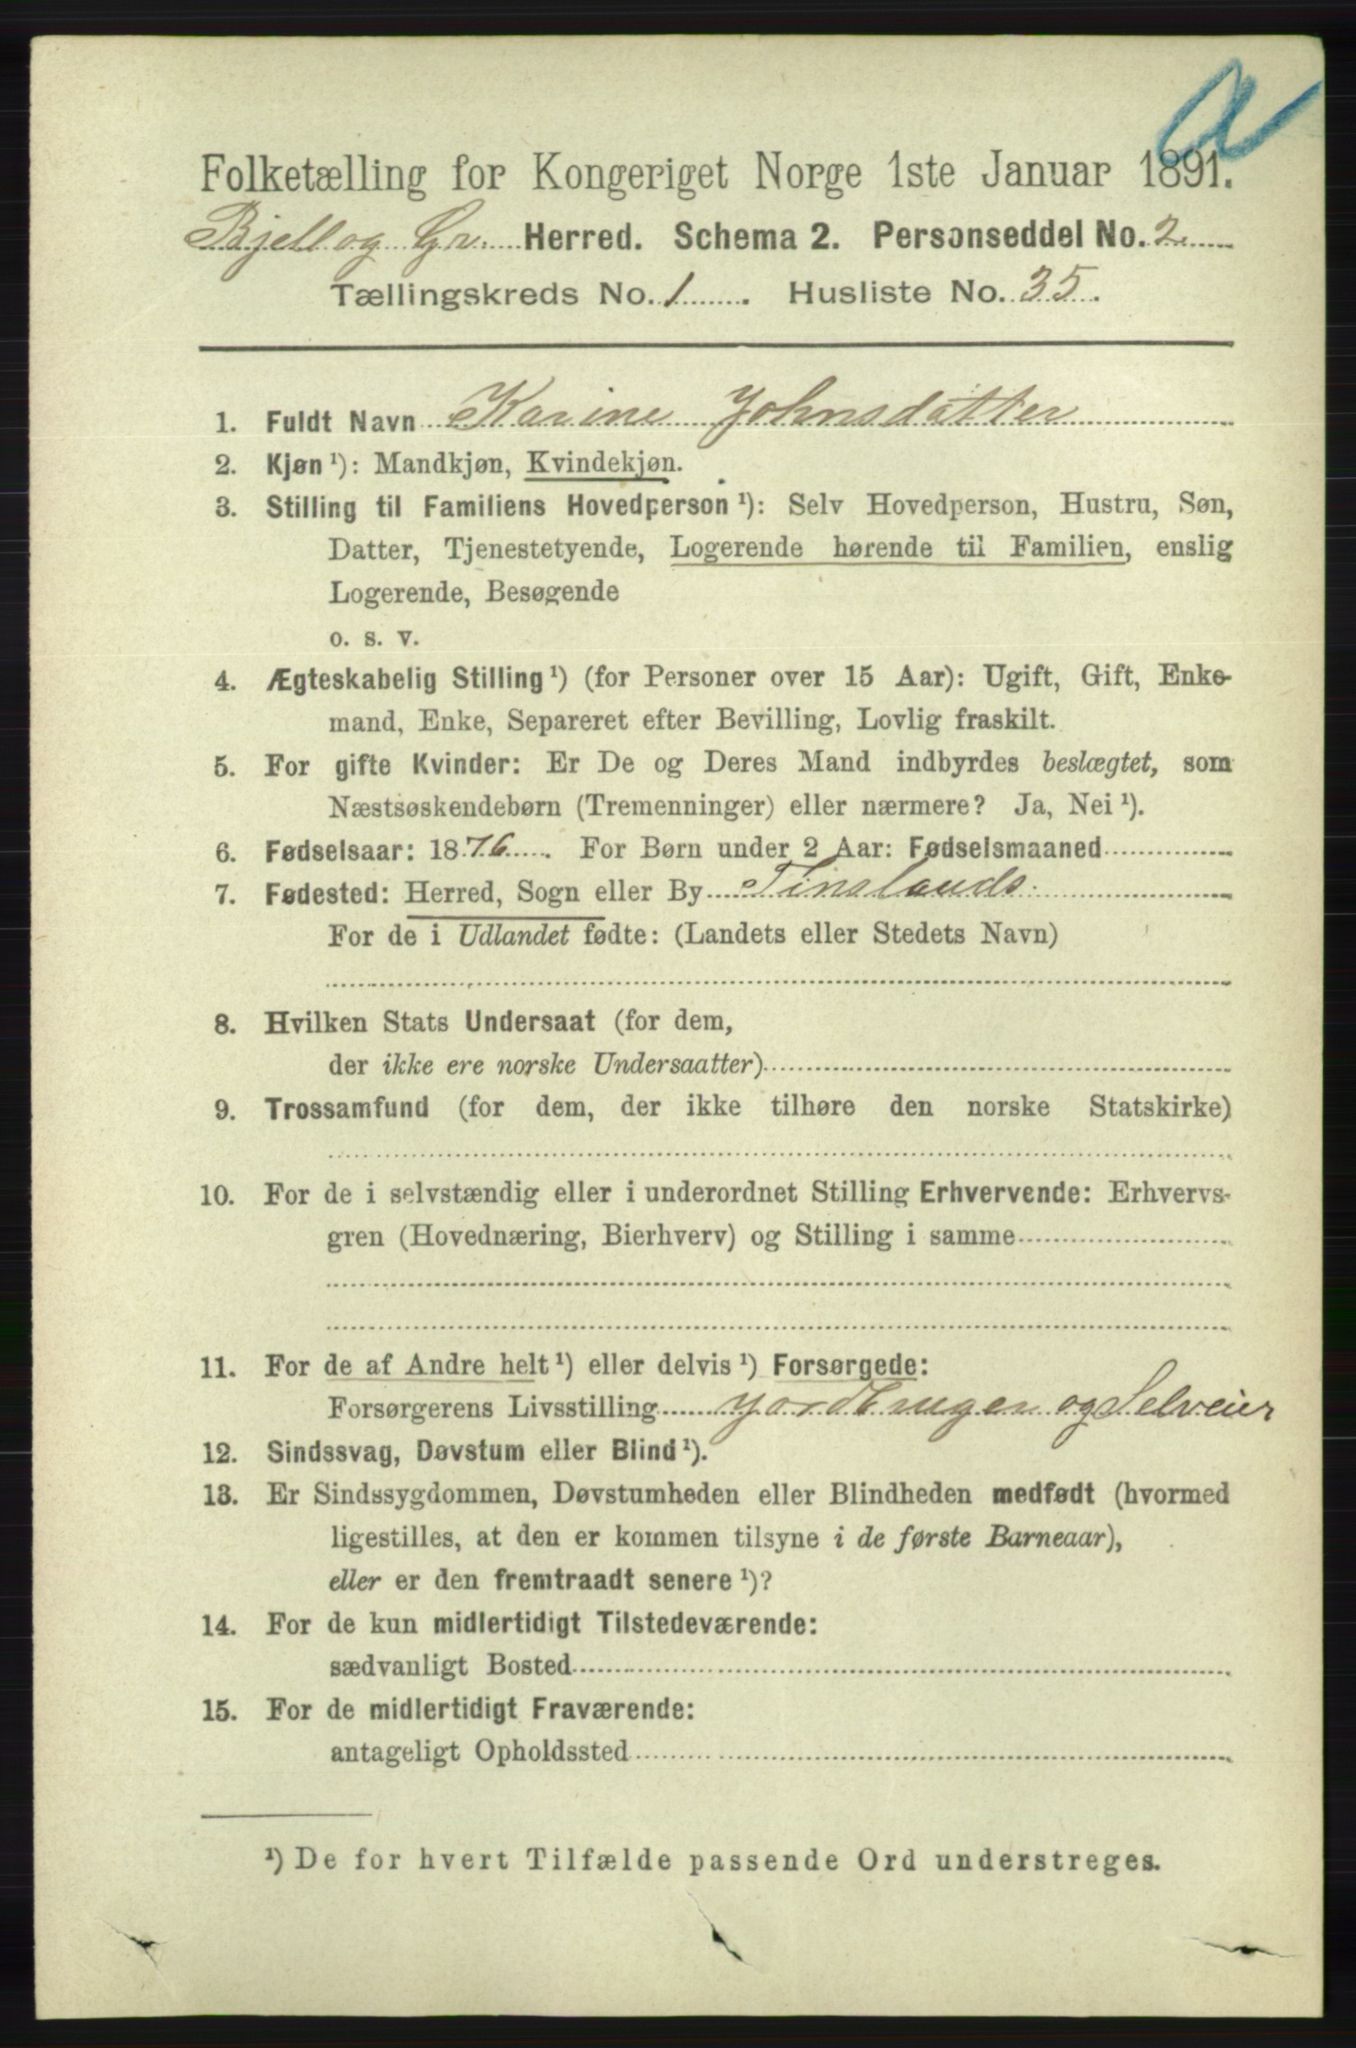 a
Folketælling for Kongeriget Norge 1ste Januar 1891.
Bjell og Gr. Herred. Schema 2. Personseddel No. 2
Tællingskreds No. 1. Husliste No. 35.
1. Fuldt Navn Karine Johnsdatter
2. Kjøn¹): Mandkjøn, Kvindekjøn.
3. Stilling til Familiens Hovedperson¹): Selv Hovedperson, Hustru, Søn,
Datter, Tjenestetyende, Logerende hørende til Familien, enslig
Logerende, Besøgende
o. s. v.
4. Ægteskabelig Stilling¹) (for Personer over 15 Aar): Ugift, Gift, Enke-
mand, Enke, Separeret efter Bevilling, Lovlig fraskilt.
5. For gifte Kvinder: Er De og Deres Mand indbyrdes beslægtet, som
Næstsøskendebørn (Tremenninger) eller nærmere? Ja, Nei¹).
6. Fødselsaar: 1876. For Børn under 2 Aar: Fødselsmaaned
7. Fødested: Herred, Sogn eller By Finslands.
For de i Udlandet fødte: (Landets eller Stedets Navn)
8. Hvilken Stats Undersaat (for dem,
der ikke ere norske Undersaatter)
9. Trossamfund (for dem, der ikke tilhøre den norske Statskirke)
10. For de i selvstændig eller i underordnet Stilling Erhvervende: Erhvervs-
gren (Hovednæring, Bierhverv) og Stilling i samme
11. For de af Andre helt¹) eller delvis¹) Forsørgede:
Forsørgerens Livsstilling Jordbruger og Selveier
12. Sindssvag, Døvstum eller Blind¹).
13. Er Sindssygdommen, Døvstumheden eller Blindheden medfødt (hvormed
ligestilles, at den er kommen tilsyne i de første Barneaar),
eller er den fremtraadt senere¹)?
14. For de kun midlertidigt Tilstedeværende:
sædvanligt Bosted
15. For de midlertidigt Fraværende:
antageligt Opholdssted
¹) De for hvert Tilfælde passende Ord understreges.